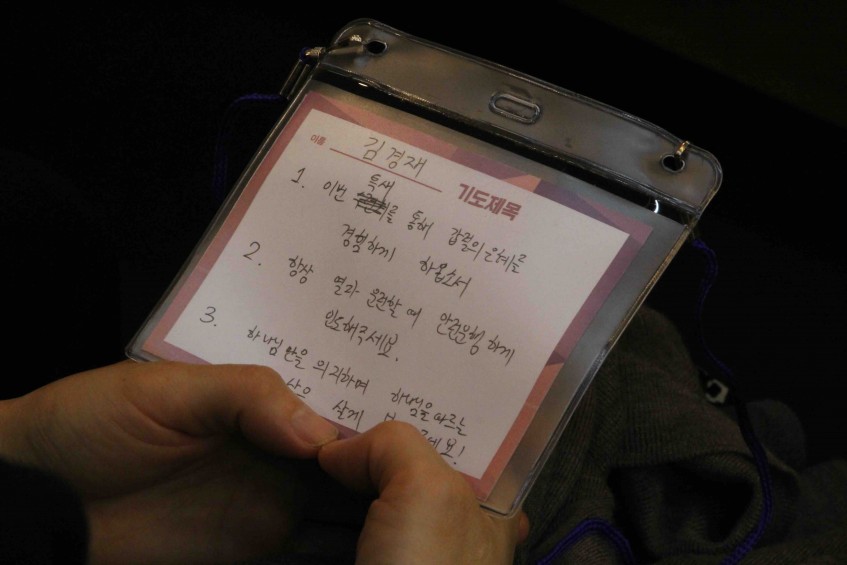 이름 김경재
기도제목
특새
1. 이번 를 통해 갑절의 은혜를
경험하게 하옵소서
2. 항상 열차 운전할 때 안전운행 하게
인도해주세요.
3. 하나님만을 의지하며 하나님을 따르는
삶을 살게